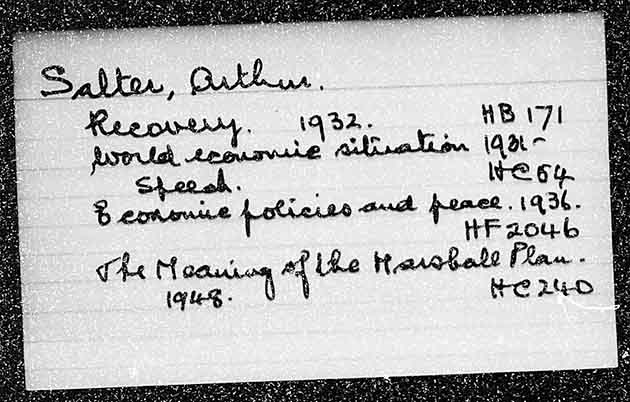 Salter, Arthur.
Recovery. 1932. HB 171
World economic situation 1931-
Speech. HC 54
Economic policies and peace. 1936.
HF 2046
The Meaning of the Marshall Plan.
1948. HC 240